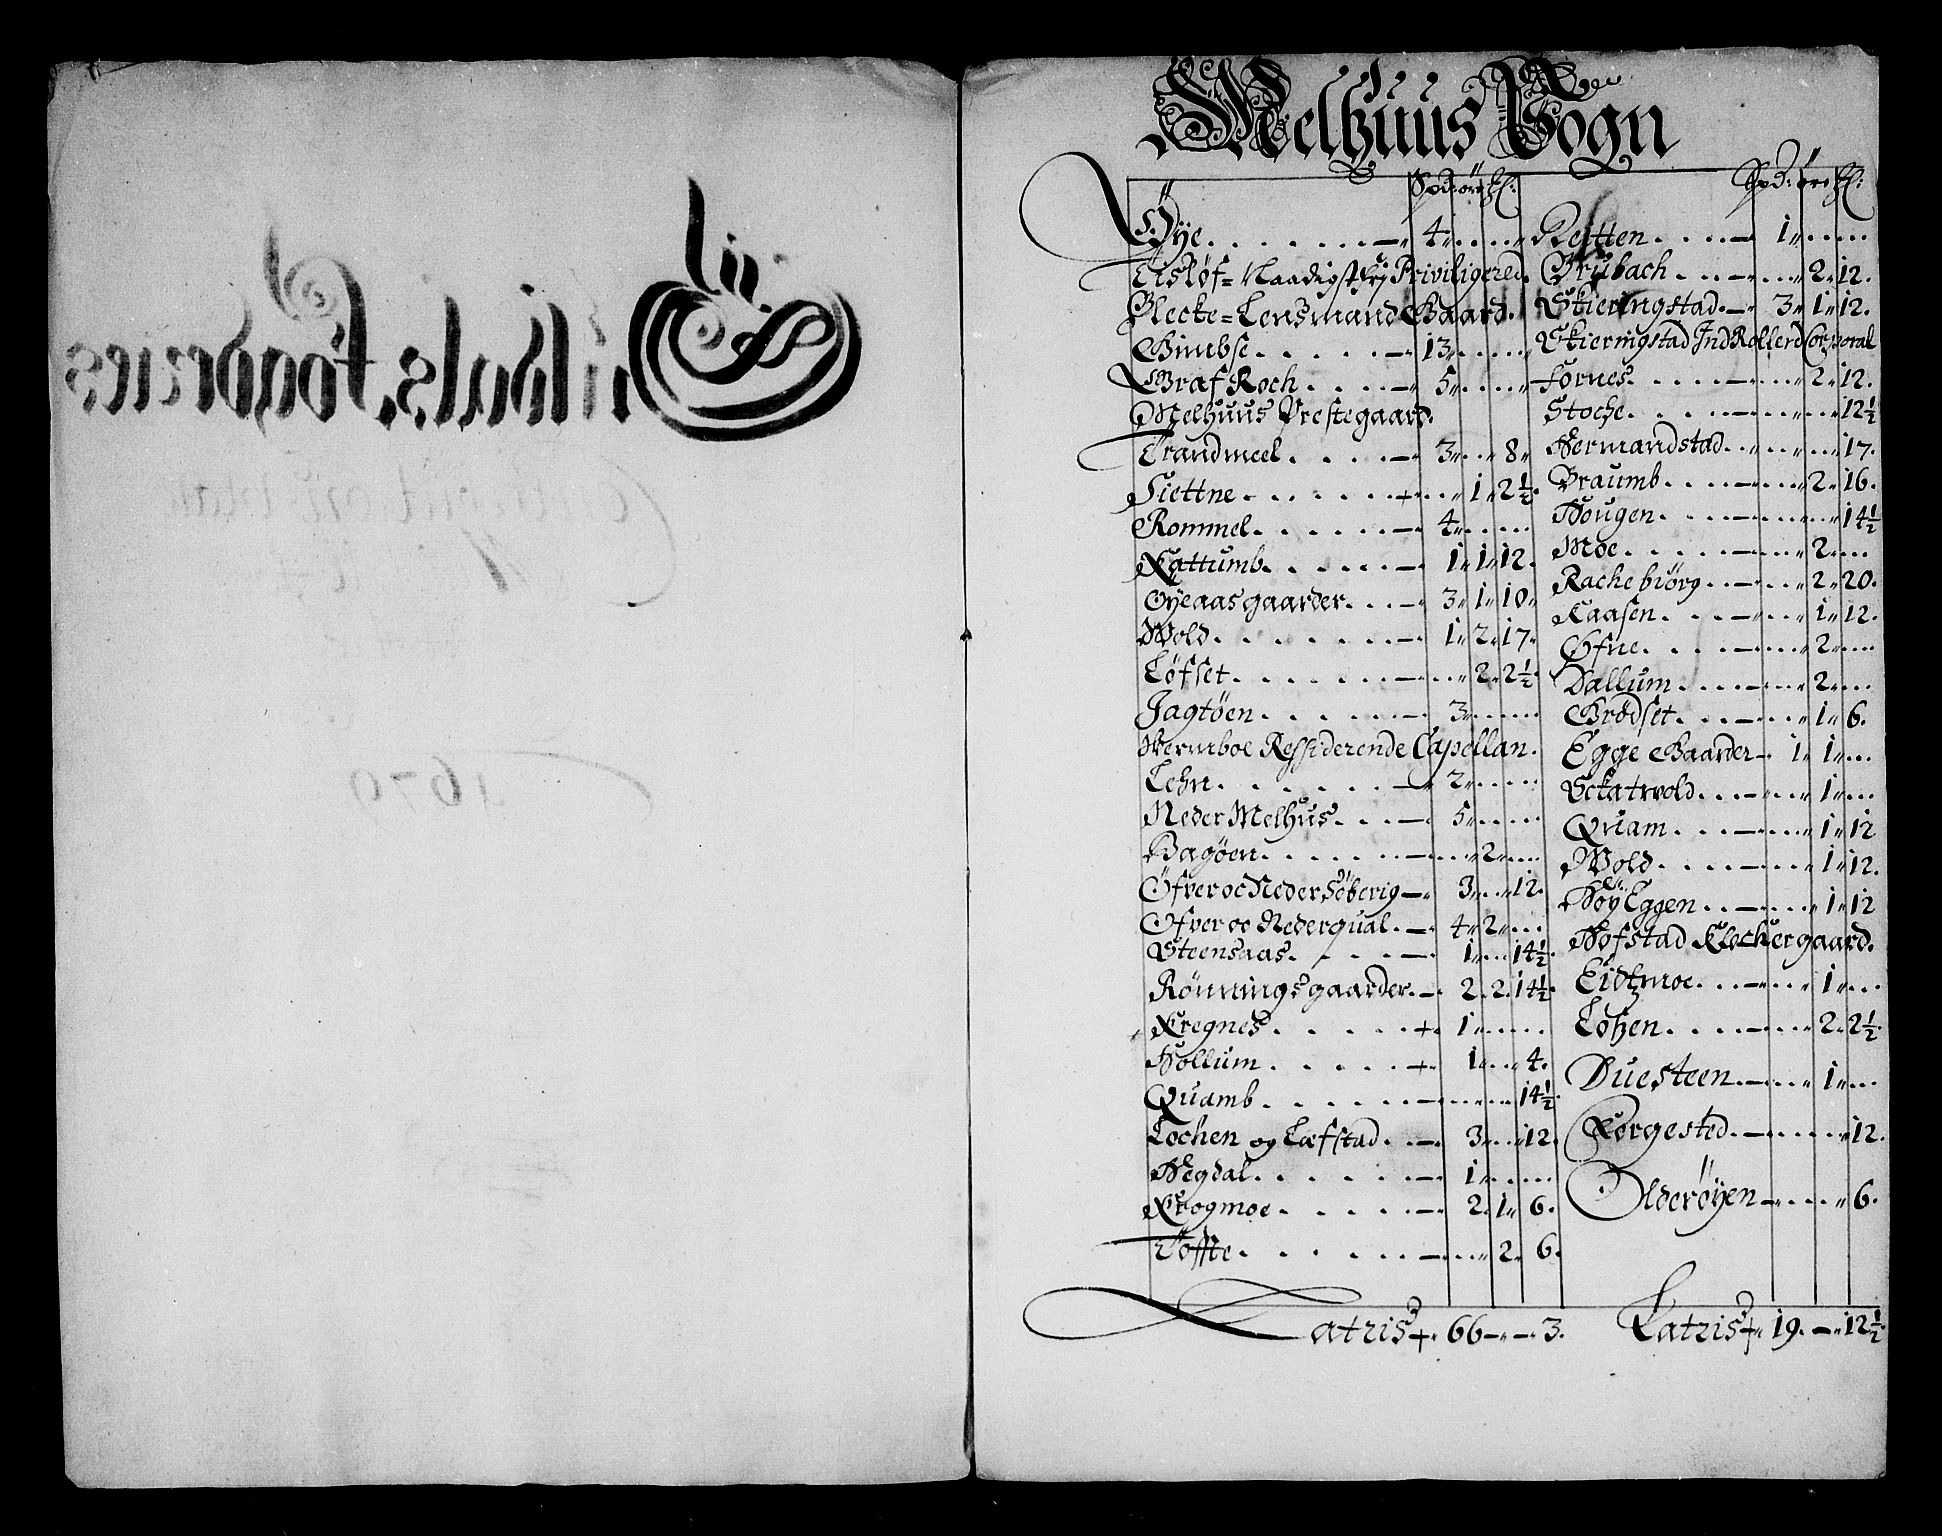 Melhuus Sogn
Spd: ort ß:
Øye. . . . . . . . — 4 . . . .
Eisløf = Naadigst Privilligered.
Flecke = Lensmand Gaard.
Gimbse . . . . . — 13 . . . .
Graf Roch. . . . — 5 . . . .
Melhuus Prestegaard.
Trandmeel. . . . — 3 . . 8
Siettne. . . . . — . . 1 . 2½
Rommel. . . . . — 4 . . . .
Kattumb. . . . . — 1 . 1 . 12.
Øyeaas gaarder. . . — 3 . 1 . 10
Wold. . . . . . . — 1 . 2 . 17.
Løfset. . . . . . — . . 2 . 2½
Jagtøen. . . . . — 3 . . . .
Wermboe Ressiderende Capellan.
Lehn. . . . . . — 2 . . . .
Neder Melhus. . . — 5 . . . .
Bagøen. . . . . — . . 2 . . .
Øfver oc Neder Søberig — 3 . . 12.
Ofver oc Nederqual. — 4 . 2 . . .
Steensaas. . . . — 1 . . 14½
Rønnings gaarder. — 2. 2. 14½
Kregnes. . . . . + 1 . . . .
Hollum. . . . . + 1 . . 4.
Quamb. . . . . — . . . . 14½
Lochen og Læfstad. . — 3 . . 12.
Hegdal. . . . . — 1 . . . .
Krogmoe. . . . . — 2. 1. 6.
Toffte. . . . . — . . 2. 6.
Latris + 66 — — 3.
Spd: ort ß:
Reitten. . . . — 1 . . . .
Grubach. . . — . . 2 . 12.
Skieringstad. — 3 . 1 . 12.
Skieringstad Ind Rollerd Corporal
Fornes. . . . . — . . 2 . 12.
Stoche. . . . — . . . . 12½
Hermandstad. . . . . . 17.
Braumb. . . . — . . 2 . 16.
Hougen. . . . — . . . . 14½
Moe. . . . . — . . 2 . . .
Rachebiörg. . — . . 2 . 20.
Kaasen. . . . — . . 1 . 12.
Øfne. . . . . — . . 2 . . .
Dallum. . . . — . . 2 . . .
Grødset. . . . — . . 1 . 6.
Egge Gaarder — 1 . 1 . . .
Sckatwold. . . — . . 1 . . .
Quam. . . . — . . 1 . 12
Wold. . . . . — . . 1 . 12.
Høy Eggen. . . — . . 1 . 12
Hofstad Klockergaard.
Eidtmoe. . . — . . 1 . . .
Lohen. . . . — . . 2 . 2½
Duesteen. — . . 1 . . .
Korgested. — . . . . 12.
Olderøyen — . . . . 6.
Latris + 19. — 12½